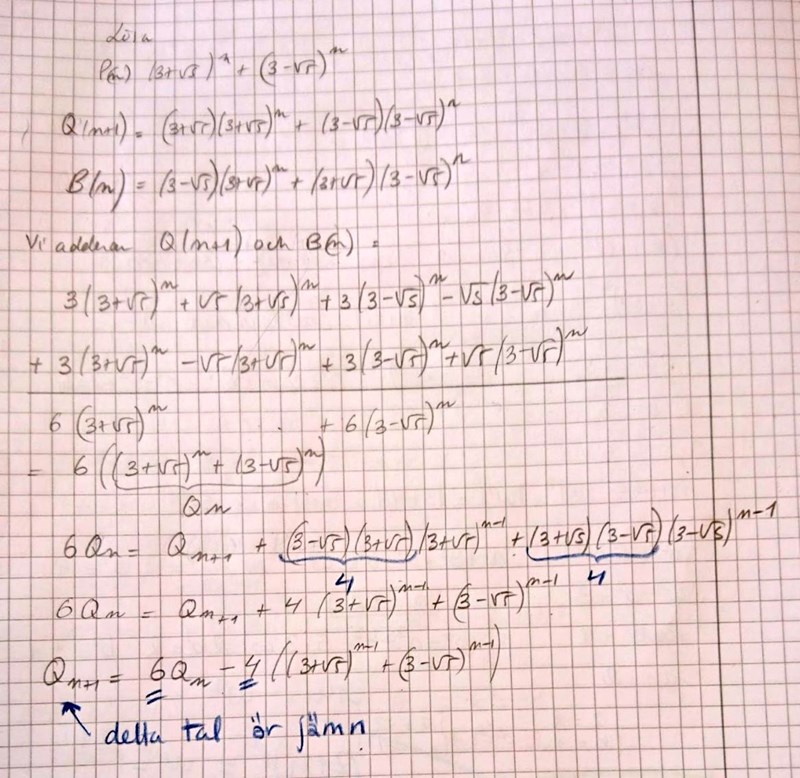 Lösa
P(n) (3+√5)^n + (3-√5)^n
Q(n+1) = (3+√5)(3+√5)^n + (3-√5)(3-√5)^n
B(n) = (3-√5)(3+√5)^n + (3+√5)(3-√5)^n
Vi adderar Q(n+1) och B(n) =
3(3+√5)^n + √5(3+√5)^n + 3(3-√5)^n - √5(3-√5)^n
+ 3(3+√5)^n - √5(3+√5)^n + 3(3-√5)^n + √5(3-√5)^n
6(3+√5)^n + 6(3-√5)^n
= 6((3+√5)^n + (3-√5)^n)
Qn
6Qn = Q_{n+1} + (3-√5)(3+√5)(3+√5)^{n-1} + (3+√5)(3-√5)(3-√5)^{n-1}
4 4
6Qn = Q_{n+1} + 4(3+√5)^{n-1} + (3-√5)^{n-1}
Q_{n+1} = 6Q_n - 4((3+√5)^{n-1} + (3-√5)^{n-1})
detta tal är jämn